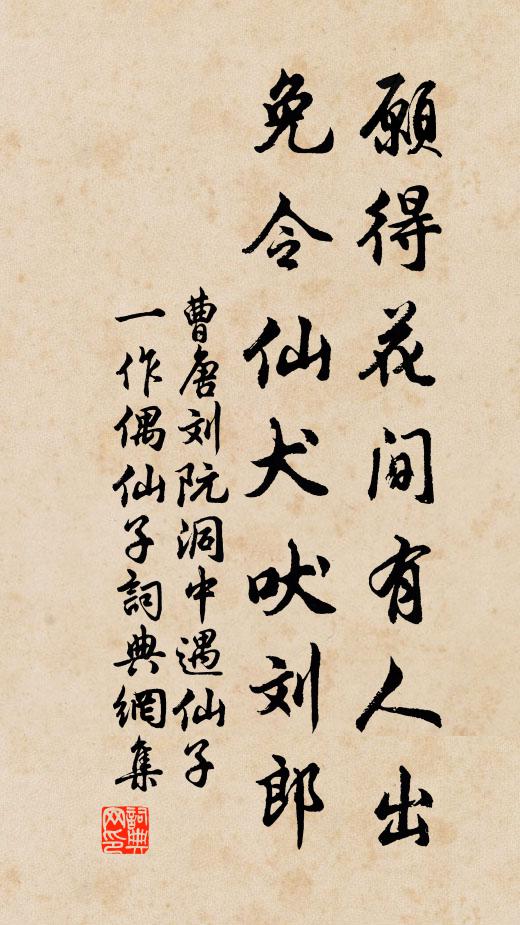 願得花间有人出
免令仙犬吠刘郎
曹唐刘阮洞中遇仙子
一作偶仙子詞典網集
詞典
网印